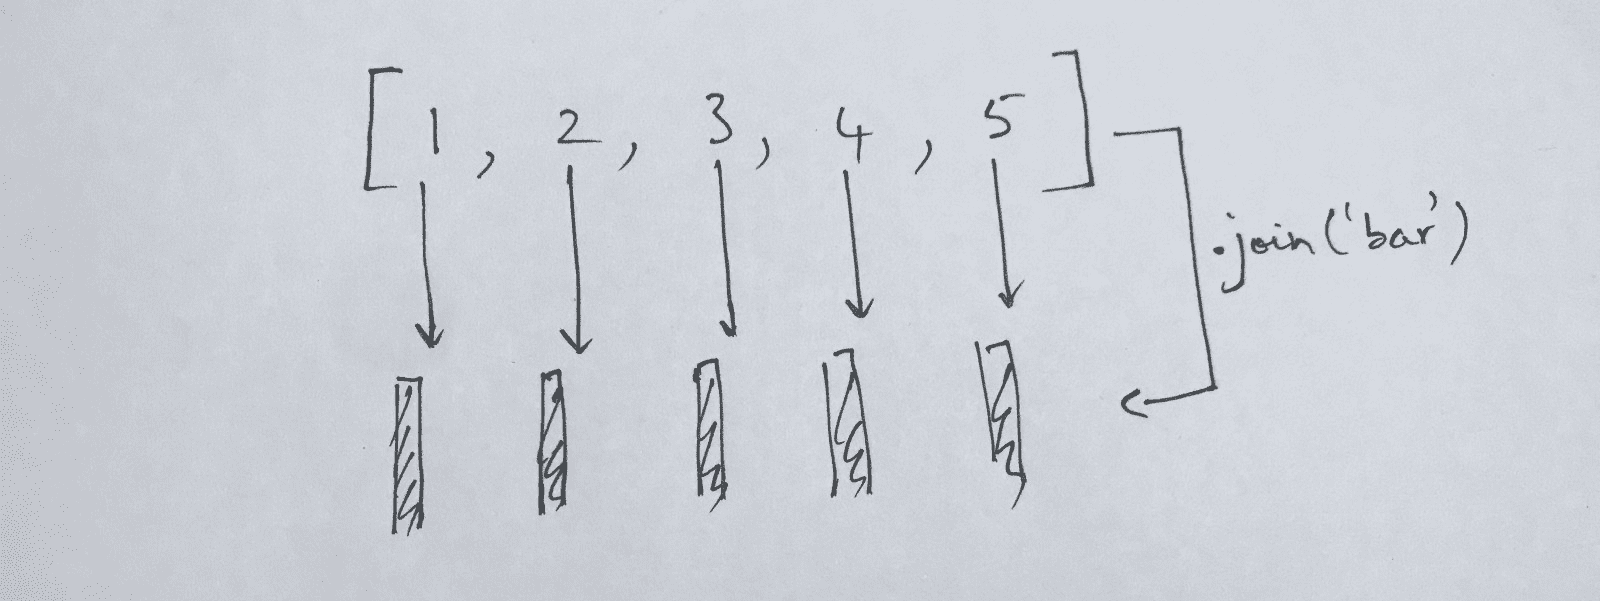 [1, 2, 3, 4, 5]
.join('bar')